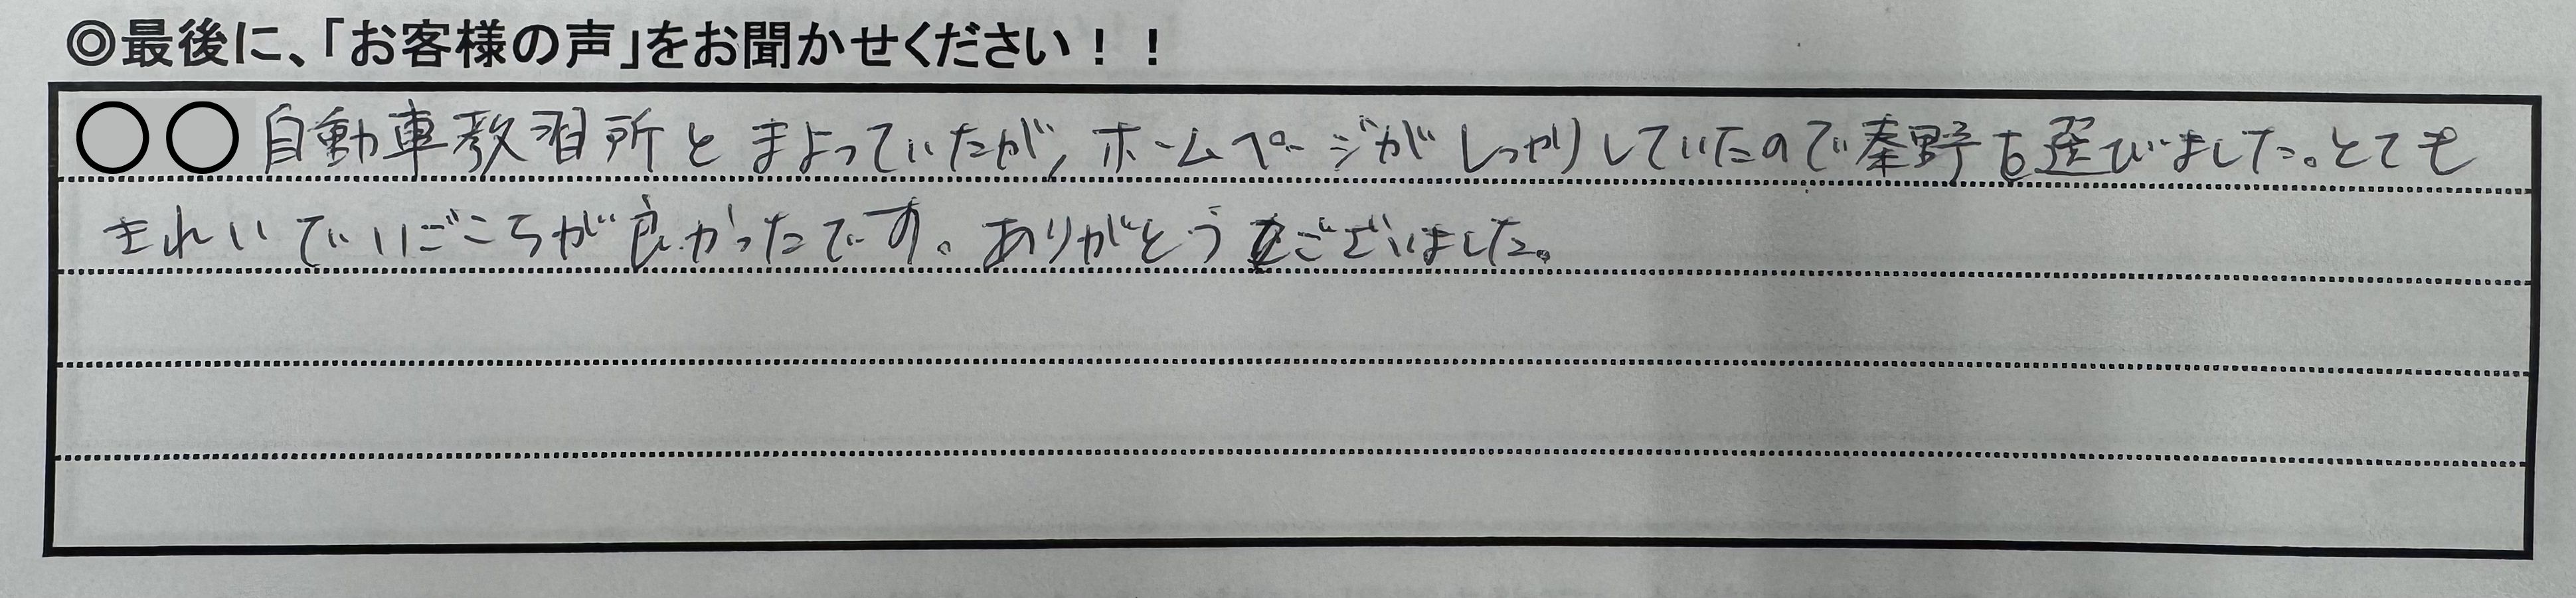 ◎最後に、「お客様の声」をお聞かせください！！
○○自動車教習所とまよっていたが、ホームページがしっかりしていたので秦野を選びました。とても
きれいでいごこちが良かったです。ありがとうございました。